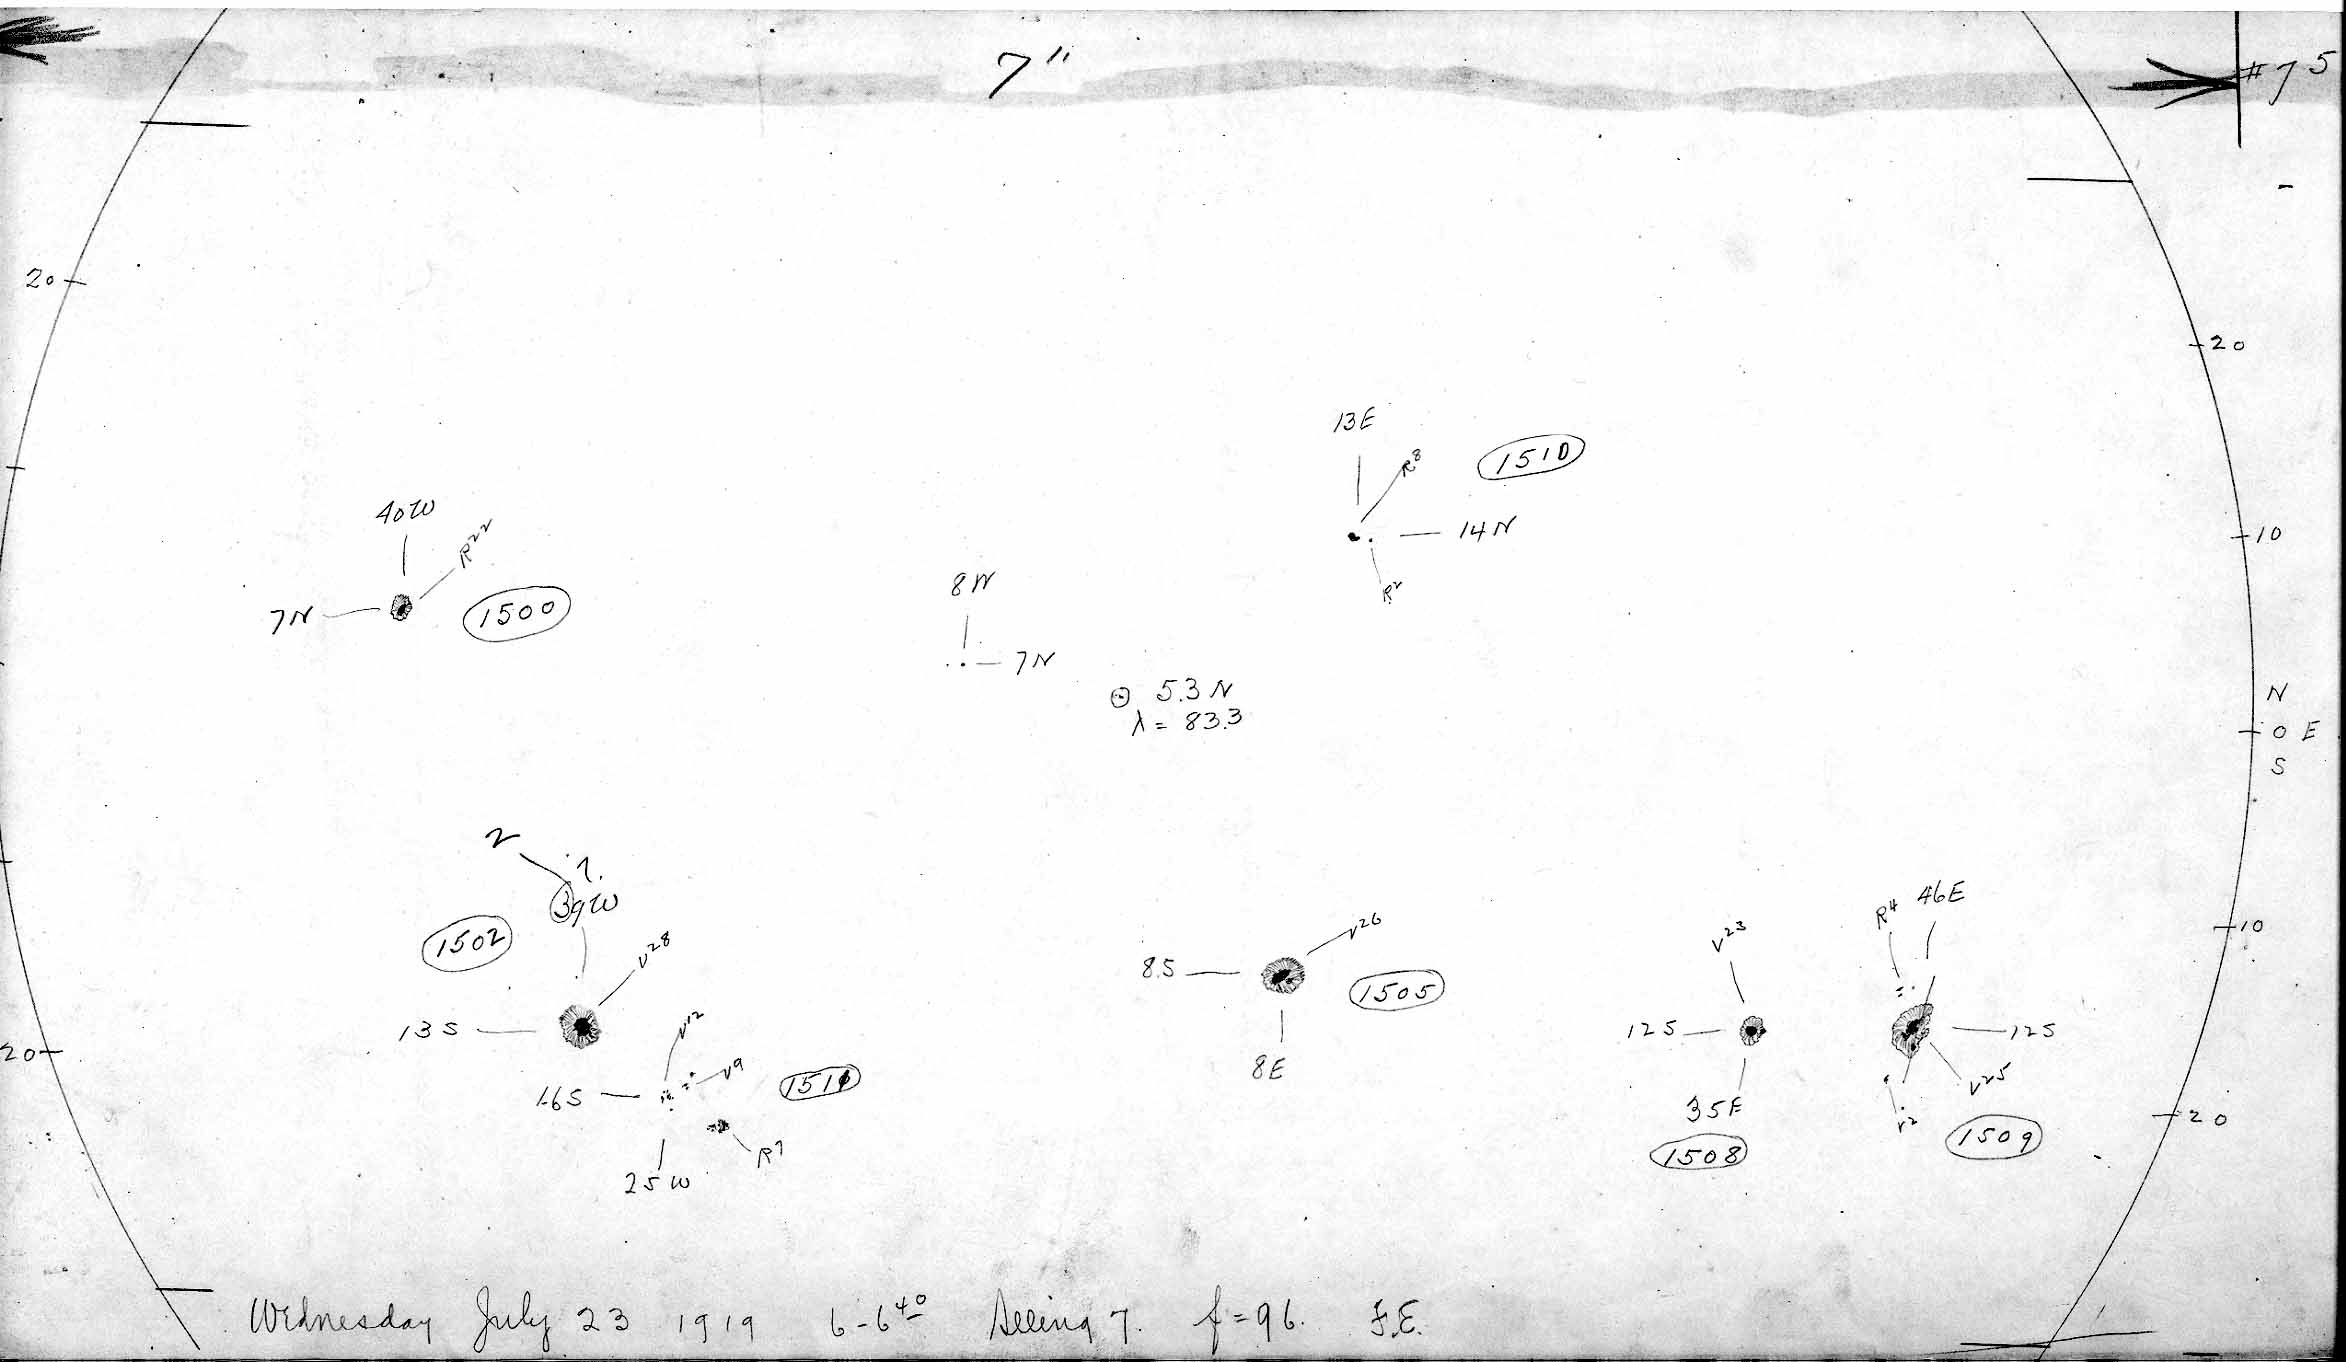 7"
#75
20
20
13E
R8
1510
14N
R2
10
40W
R22
7N
1500
8W
7N
5.3N
λ = 83.3
N
0 E
S
2
?
39W
1502
V28
13S
V12
V9
16S
25W
R7
20
V26
8S
1505
8E
V23
12S
35E
1508
R4
46E
12S
V25
V2
1509
10
20
Wednesday July 23 1919 6-6 40 Seeing 7. f=96. F.E.